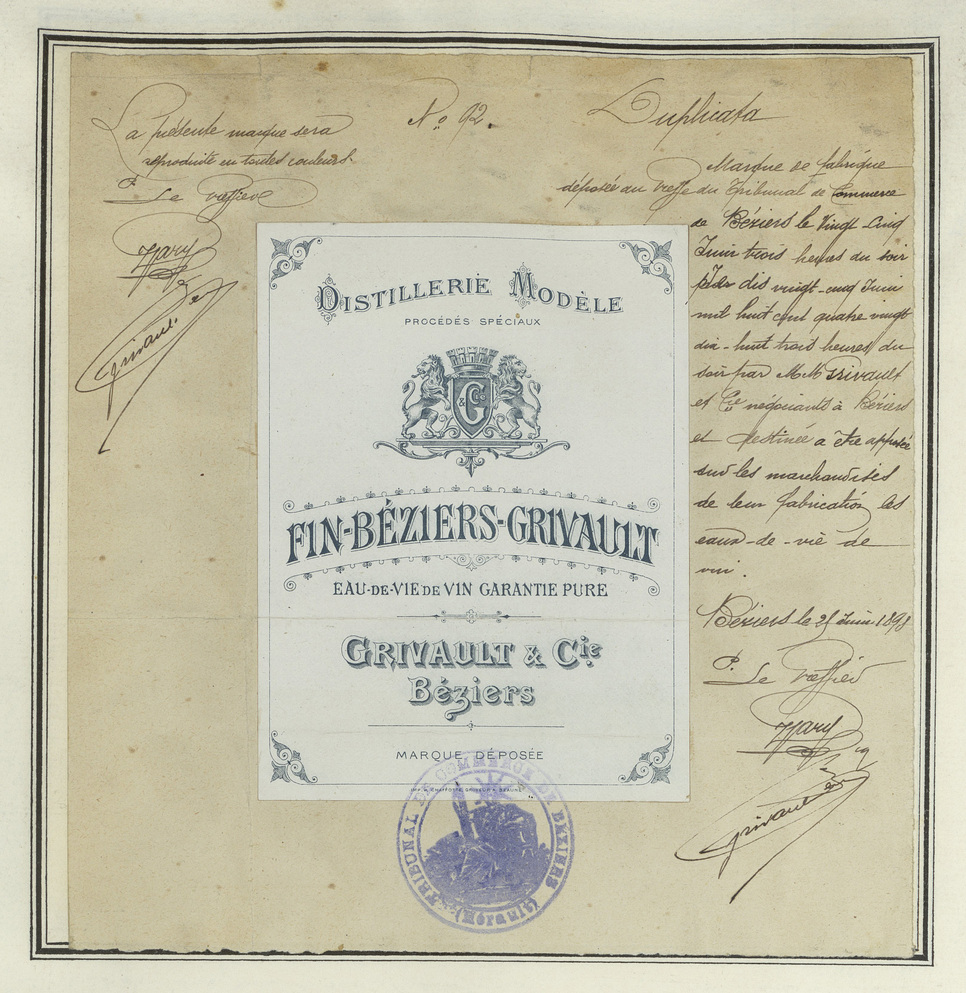 La présente marque sera
reproduite en toutes couleurs.
P. Le Greffier
Grivault & Cie
No 92.
Duplicata
Marque de fabrique
déposée au Greffe du Tribunal de Commerce
de Béziers le Vingt Cinq
Juin trois heures du soir
dis vingt-cinq Juin
mil huit cent quatre vingt
dix-huit trois heures du
soir par M.M. Grivault
et Cie négociants à Béziers
et destinée à être apposée
sur les marchandises
de leur fabrication les
eaux-de-vie de
vin.
Béziers le 25 Juin 1898
P. Le Greffier
Grivault & Cie
DISTILLERIE MODÈLE
PROCÉDÉS SPÉCIAUX
G
& Cie
FIN-BÉZIERS-GRIVAULT
EAU-DE-VIE DE VIN GARANTIE PURE
GRIVAULT & Cie
Béziers
MARQUE DÉPOSÉE
TRIBUNAL DE COMMERCE DE BÉZIERS
(Hérault)